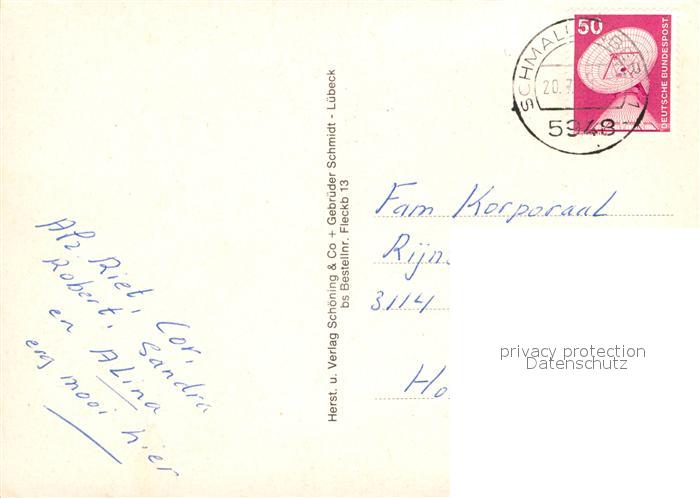 50
DEUTSCHE BUNDESPOST
SCHMALL
20.
5948
Herst. u. Verlag Schöning & Co + Gebrüder Schmidt - Lübeck
bs Bestellnr. Fleckb 13
Fam Korporaal
Rijn
3114
Ho
privacy protection
Datenschutz
Afz. Riet, Cor,
Robert, Sandra
en Alina
erg mooi hier